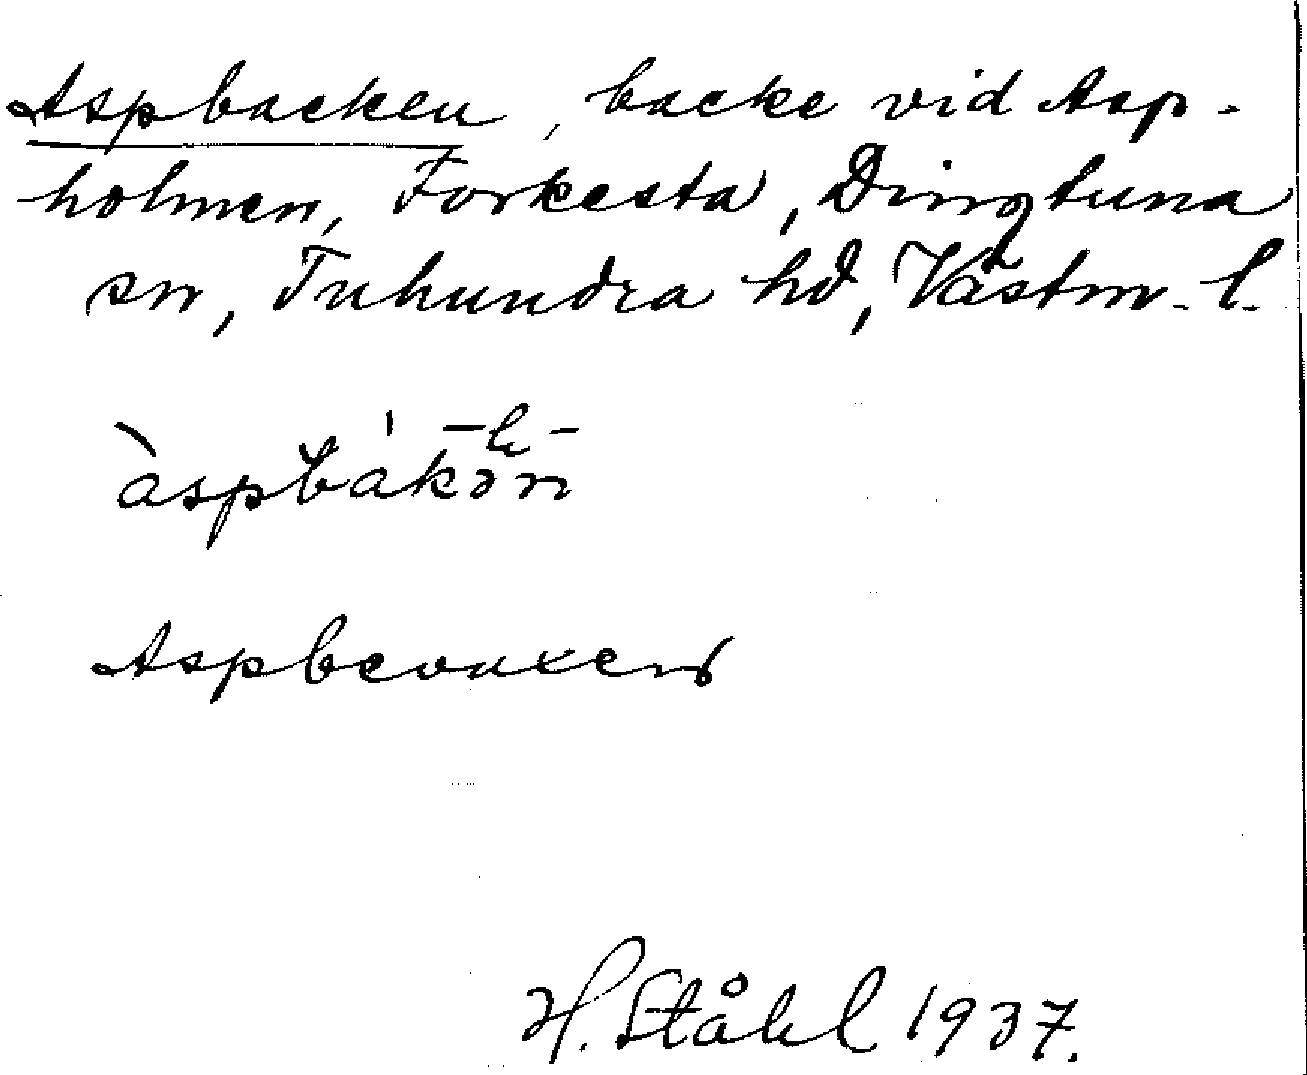 Aspbacken, backe vid Asp-
holmen, Forkesta, Dingtuna
sn, Tuhundra hd, Västm. l.
àspbákən
Aspbevuxen
H. Ståhl 1937.